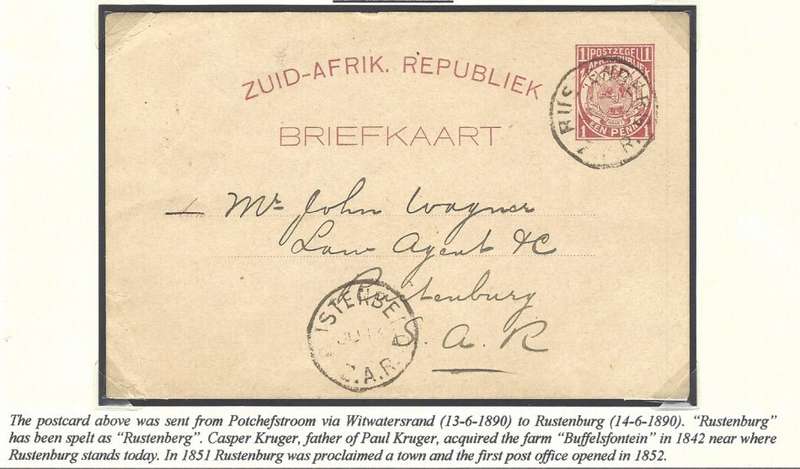 ZUID-AFRIK. REPUBLIEK
BRIEFKAART
1 POSTZEGEL 1
EEN PENNY
Mr John Wagner
Law Agent &C
Rustenburg
S. A. R
Z.A.R.
The postcard above was sent from Potchefstroom via Witwatersrand (13-6-1890) to Rustenburg (14-6-1890). "Rustenburg"
has been spelt as "Rustenberg". Casper Kruger, father of Paul Kruger, acquired the farm "Buffelsfontein" in 1842 near where
Rustenburg stands today. In 1851 Rustenburg was proclaimed a town and the first post office opened in 1852.